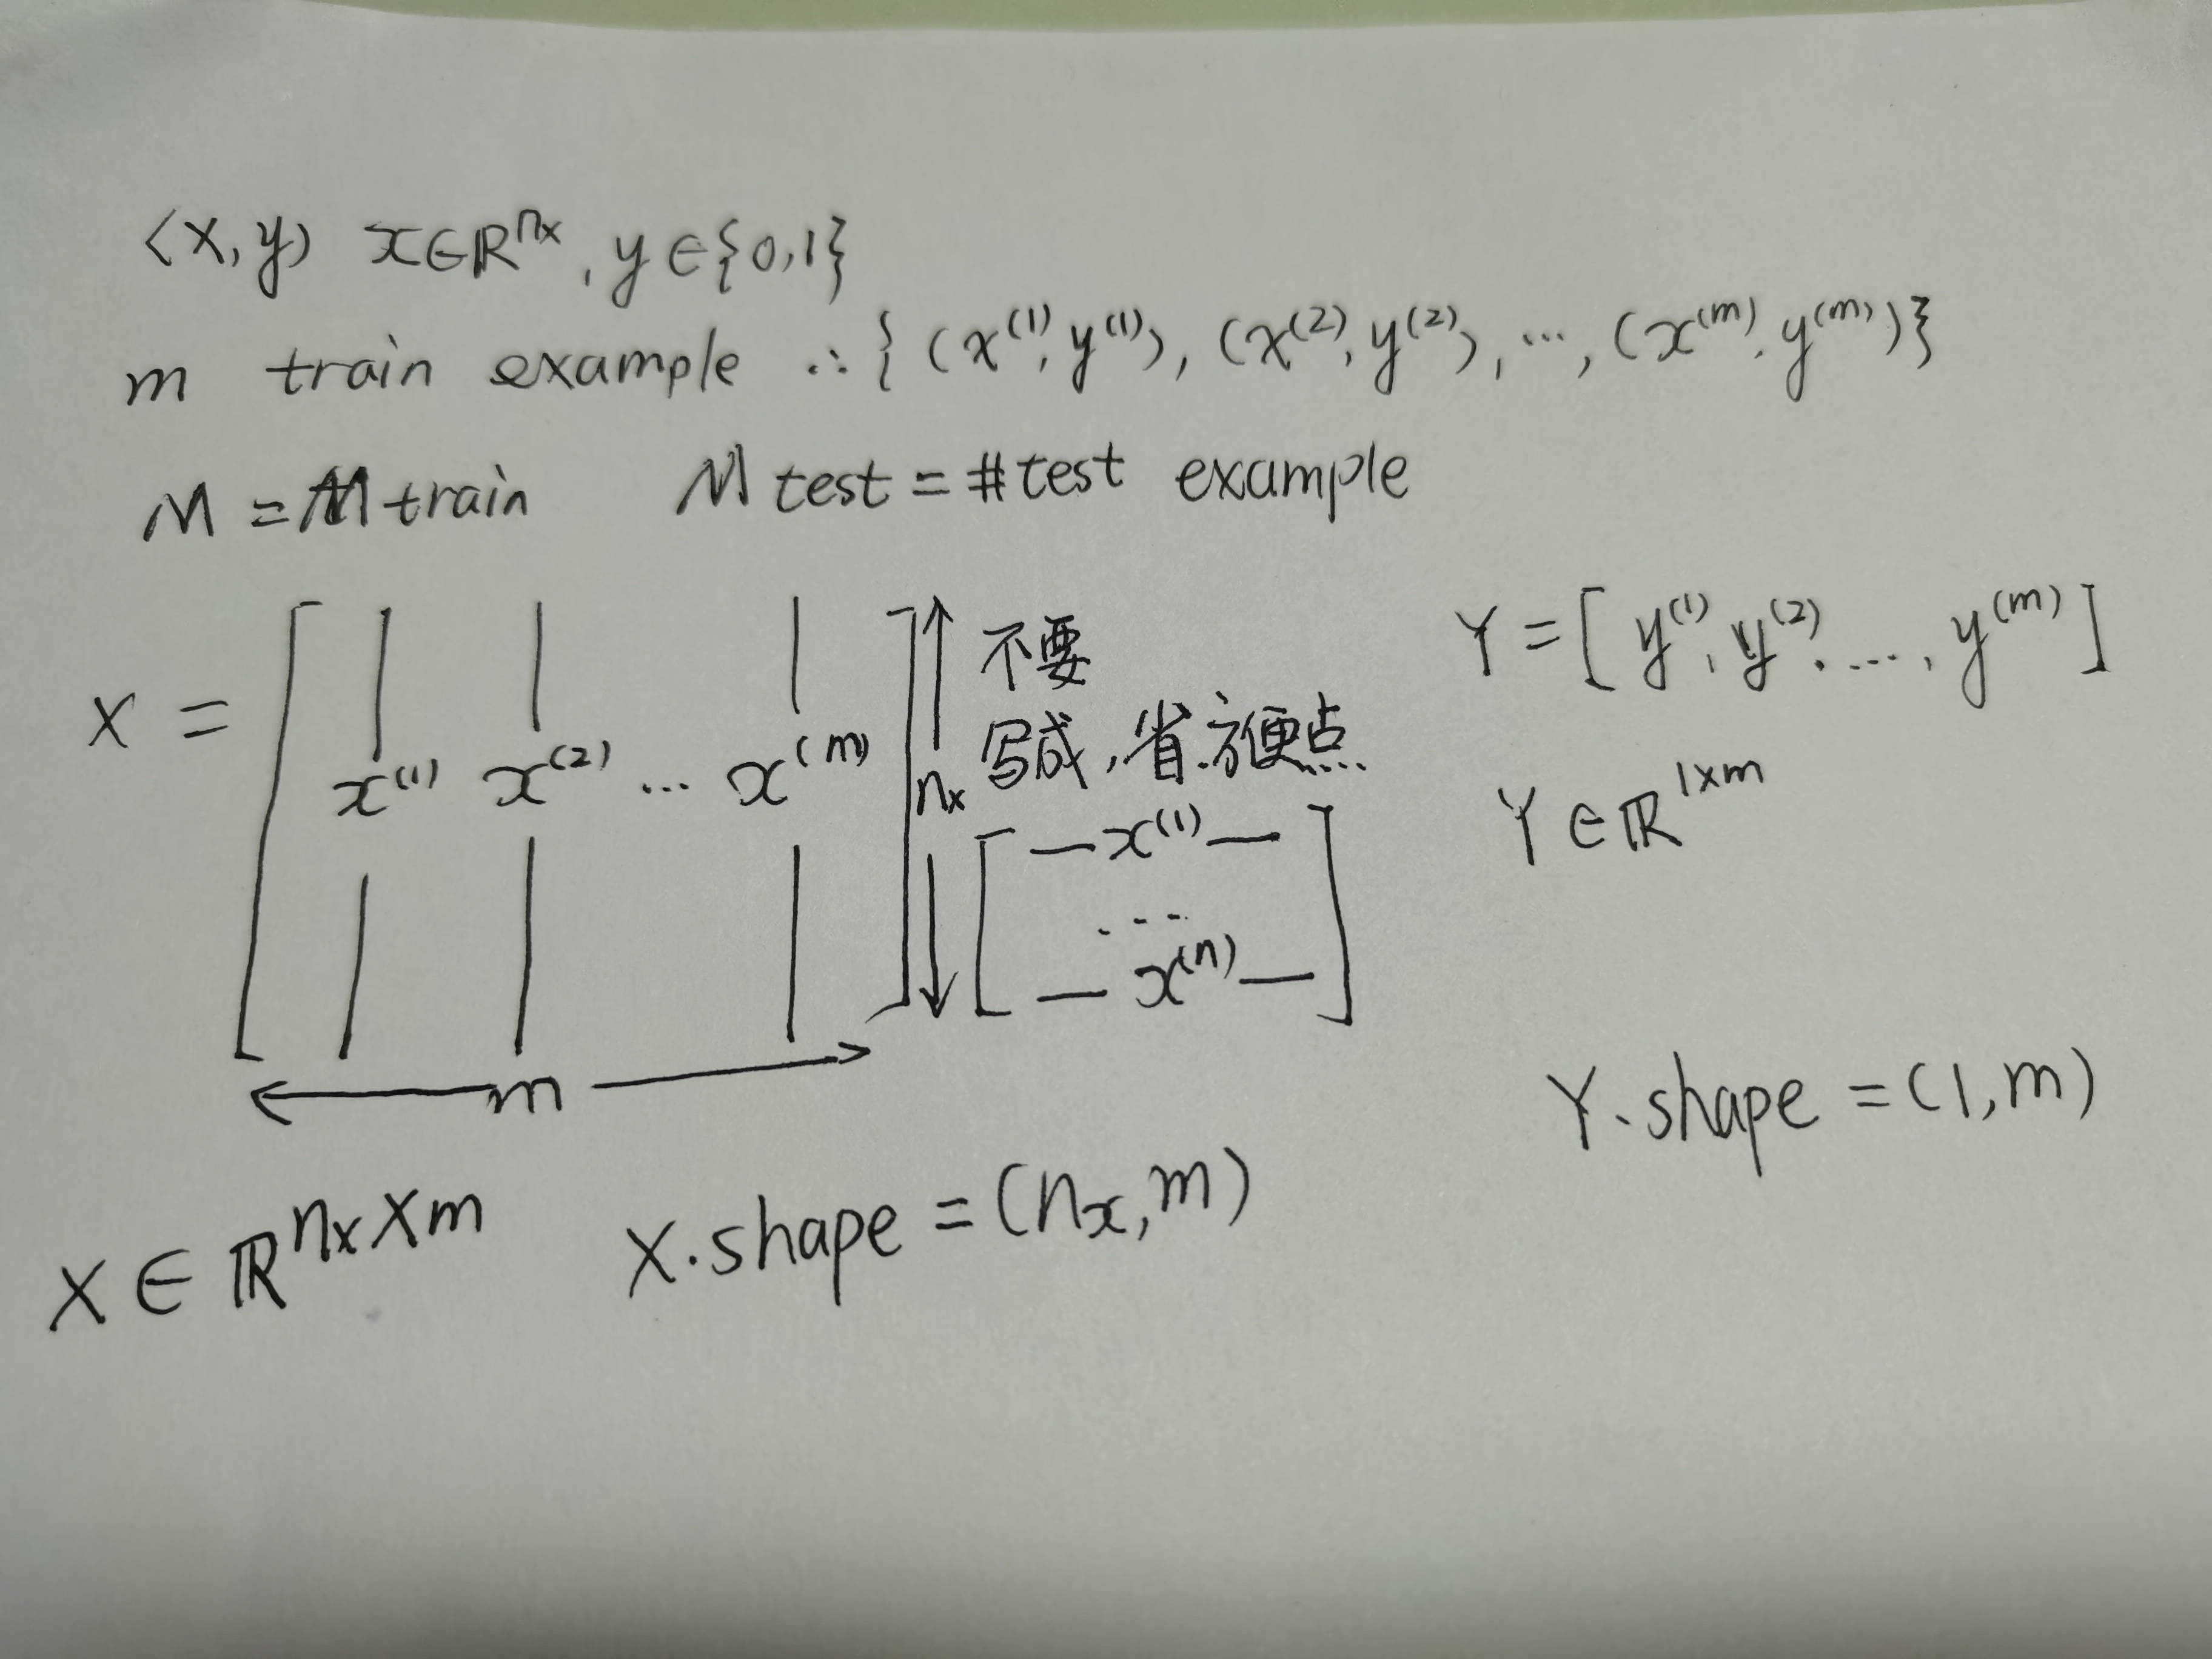 (x,y) x∈ℝ^{n_x}, y∈{0,1}
m train example ∴{(x^{(1)},y^{(1)}), (x^{(2)},y^{(2)}), ⋯, (x^{(m)},y^{(m)})}
M = M train M test = #test example
X = [ x^{(1)} x^{(2)} ... x^{(m)} ] n_x
m
不要
写成,省.方便点.
[ —x^{(1)}—
...
— x^{(n)}— ]
Y = [ y^{(1)}, y^{(2)}, ..., y^{(m)} ]
Y ∈ ℝ^{1×m}
Y.shape = (1,m)
X ∈ ℝ^{n_x×m} X.shape = (n_x,m)